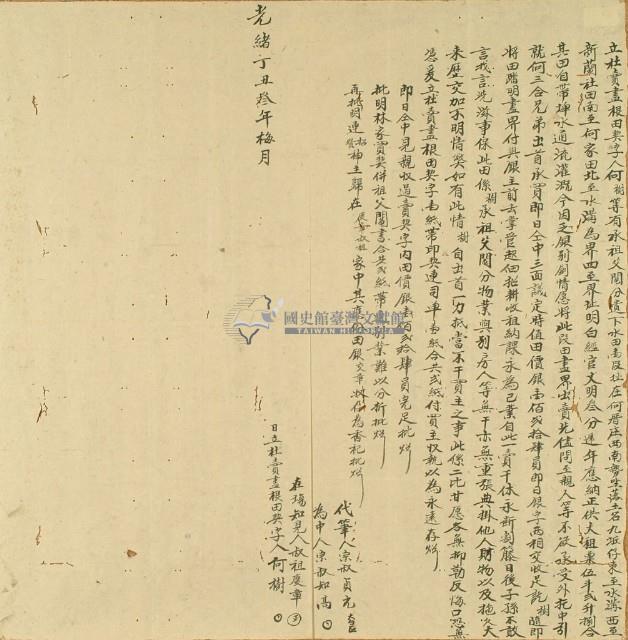 立杜賣盡根田契字人何樹等有承祖父鬮分遺下水田壹段址在何厝庄西南勢坐落土名九張仔東至水溝西至
新蘭社田南至何家田北至水溝為界四至界址明白經官丈明叁分迷年應納正供大租粟伍斗貳升捌合
其田自帶埤水通流灌溉今因乏銀別創情愿將此段田盡界出賣先儘問至親人等不欲承受外托中引
就何三合兄弟出首承買即日仝中三面議定時值田價銀壹佰貳拾肆員即日銀字兩相交收足訖樹隨即
將田踏明盡界付與銀主前去掌管起佃招耕收租納課永為己業自此一賣千休永斷割藤日後子孫不敢
言找言洗滋事保此田係樹承祖父鬮分物業與別房人等無干亦無重張典掛他人財物以及拖欠大租
來歷交加不明情獘如有此情樹自出首一力抵當不干買主之事此係二比甘愿各無抑勒反悔口恐無
憑爰立杜賣盡根田契字壹紙帶印契連司單壹紙合共貳紙付買主收執以為永遠存炤
即日仝中見親收過賣契字內田價銀壹佰貳拾肆員完足批炤
批明林家買契併祖父鬮書合共貳紙帶別業難以分折批炤
再批明連神主歸在叔祖家中其應份田銀交章收作為香祀批炤
代筆人宗叔貞元
為中人宗叔知高
在場知見人叔祖慶章
日立杜賣盡根田契字人何樹
光緒丁丑叁年梅月
國史館臺灣文獻館
TAIWAN HISTORICA